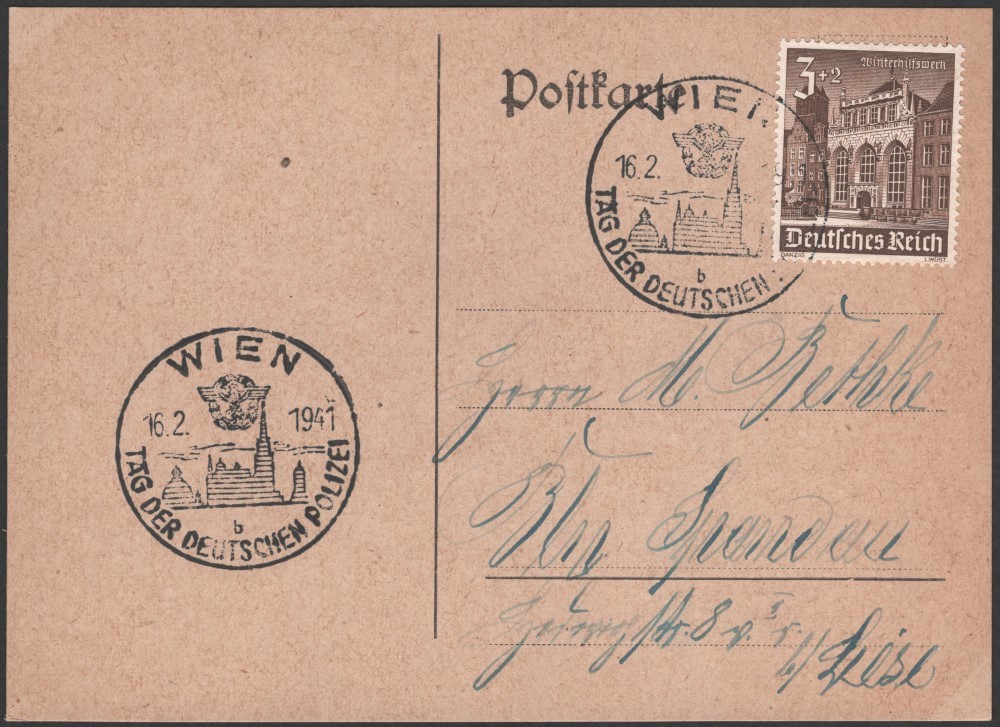 Postkarte
WIEN
16.2.
TAG DER DEUTSCHEN
b
3+2
Winterhilfswerk
Deutsches Reich
DANZIG
WIEN
16.2. 1941
TAG DER DEUTSCHEN POLIZEI
b
Herrn M. Bethke
Bln Spandau
8 v. I r.
b/ Liese